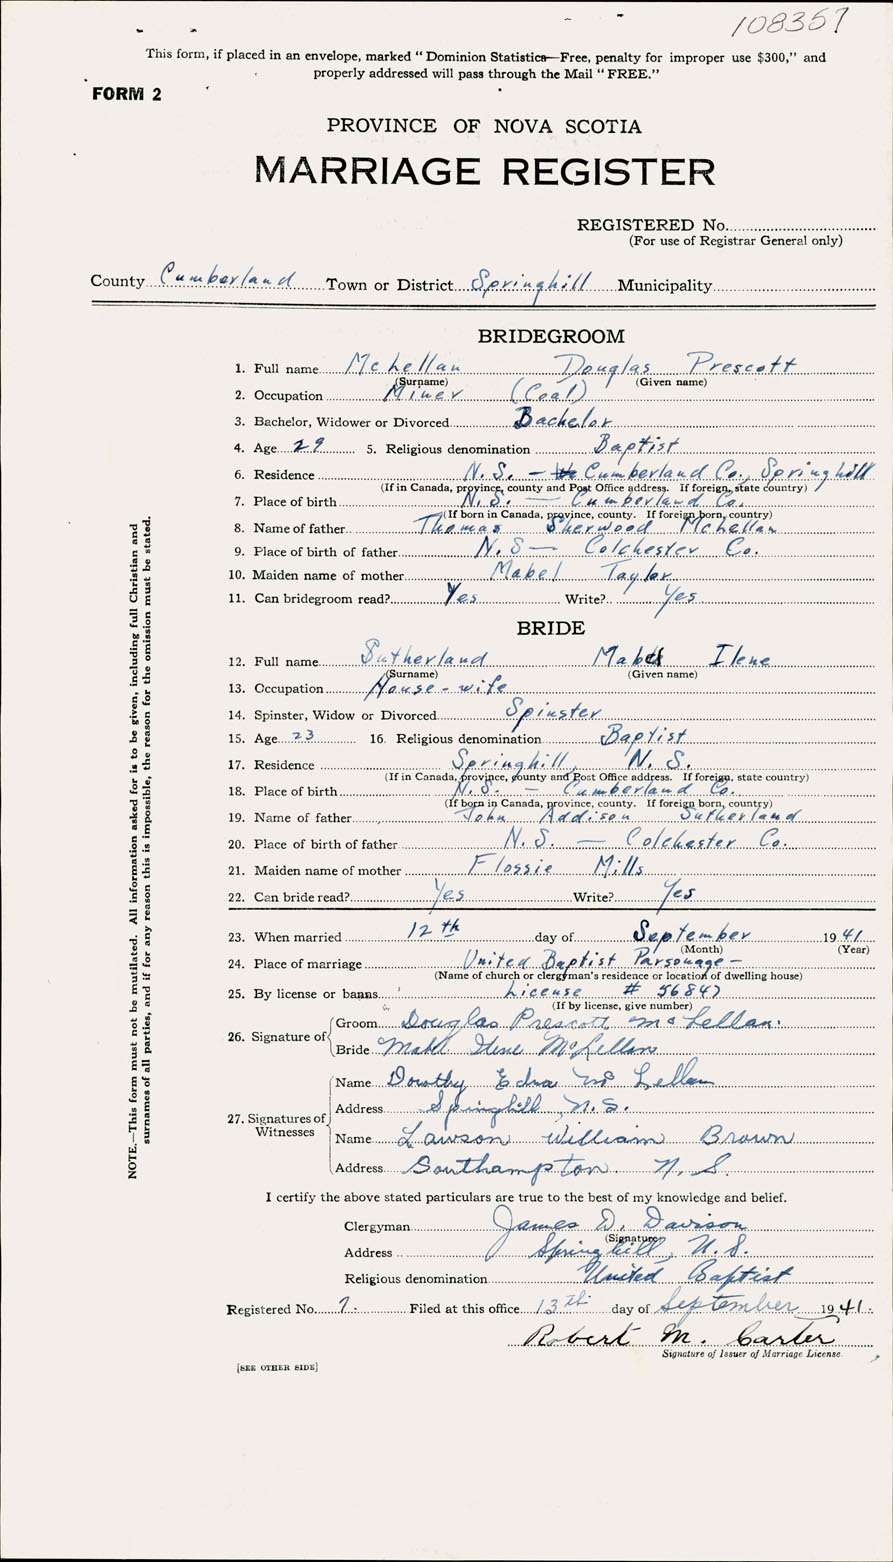 108357
This form, if placed in an envelope, marked "Dominion Statistics—Free, penalty for improper use $300," and
properly addressed will pass through the Mail "FREE."
FORM 2
PROVINCE OF NOVA SCOTIA
MARRIAGE REGISTER
REGISTERED No.
(For use of Registrar General only)
County Cumberland Town or District Springhill Municipality
BRIDEGROOM
1. Full name McLellan Douglas Prescott
(Surname) (Given name)
2. Occupation Miner (Coal)
3. Bachelor, Widower or Divorced Bachelor
4. Age 29 5. Religious denomination Baptist
6. Residence N.S. — Cumberland Co., Springhill
(If in Canada, province, county and Post Office address. If foreign, state country)
7. Place of birth N.S. — Cumberland Co.
(If born in Canada, province, county. If foreign born, country)
8. Name of father Thomas Sherwood McLellan
9. Place of birth of father N.S — Colchester Co.
10. Maiden name of mother Mabel Taylor
11. Can bridegroom read? Yes Write? Yes
BRIDE
12. Full name Sutherland Mabel Ilene
(Surname) (Given name)
13. Occupation House-wife
14. Spinster, Widow or Divorced Spinster
15. Age 23 16. Religious denomination Baptist
17. Residence Springhill, N.S.
(If in Canada, province, county and Post Office address. If foreign, state country)
18. Place of birth N.S. — Cumberland Co.
(If born in Canada, province, county. If foreign born, country)
19. Name of father John Addison Sutherland
20. Place of birth of father N.S. — Colchester Co.
21. Maiden name of mother Flossie Mills
22. Can bride read? Yes Write? Yes
23. When married 12th day of September 1941
(Month) (Year)
24. Place of marriage United Baptist Parsonage —
(Name of church or clergyman's residence or location of dwelling house)
25. By license or banns License # 56847
(If by license, give number)
26. Signature of
Groom Douglas Prescott McLellan.
Bride Mabel Ilene McLellan
27. Signatures of Witnesses
Name Dorothy Edna McLellan
Address Springhill, N.S.
Name Lawson William Brown
Address Southampton N.S.
I certify the above stated particulars are true to the best of my knowledge and belief.
Clergyman James D. Davison
(Signature)
Address Springhill, N.S.
Religious denomination United Baptist
Registered No. 7. Filed at this office 13th day of September 1941.
Robert M. Carter
Signature of Issuer of Marriage License
[SEE OTHER SIDE]
NOTE.—This form must not be mutilated. All information asked for is to be given, including full Christian and
surnames of all parties, and if for any reason this is impossible, the reason for the omission must be stated.